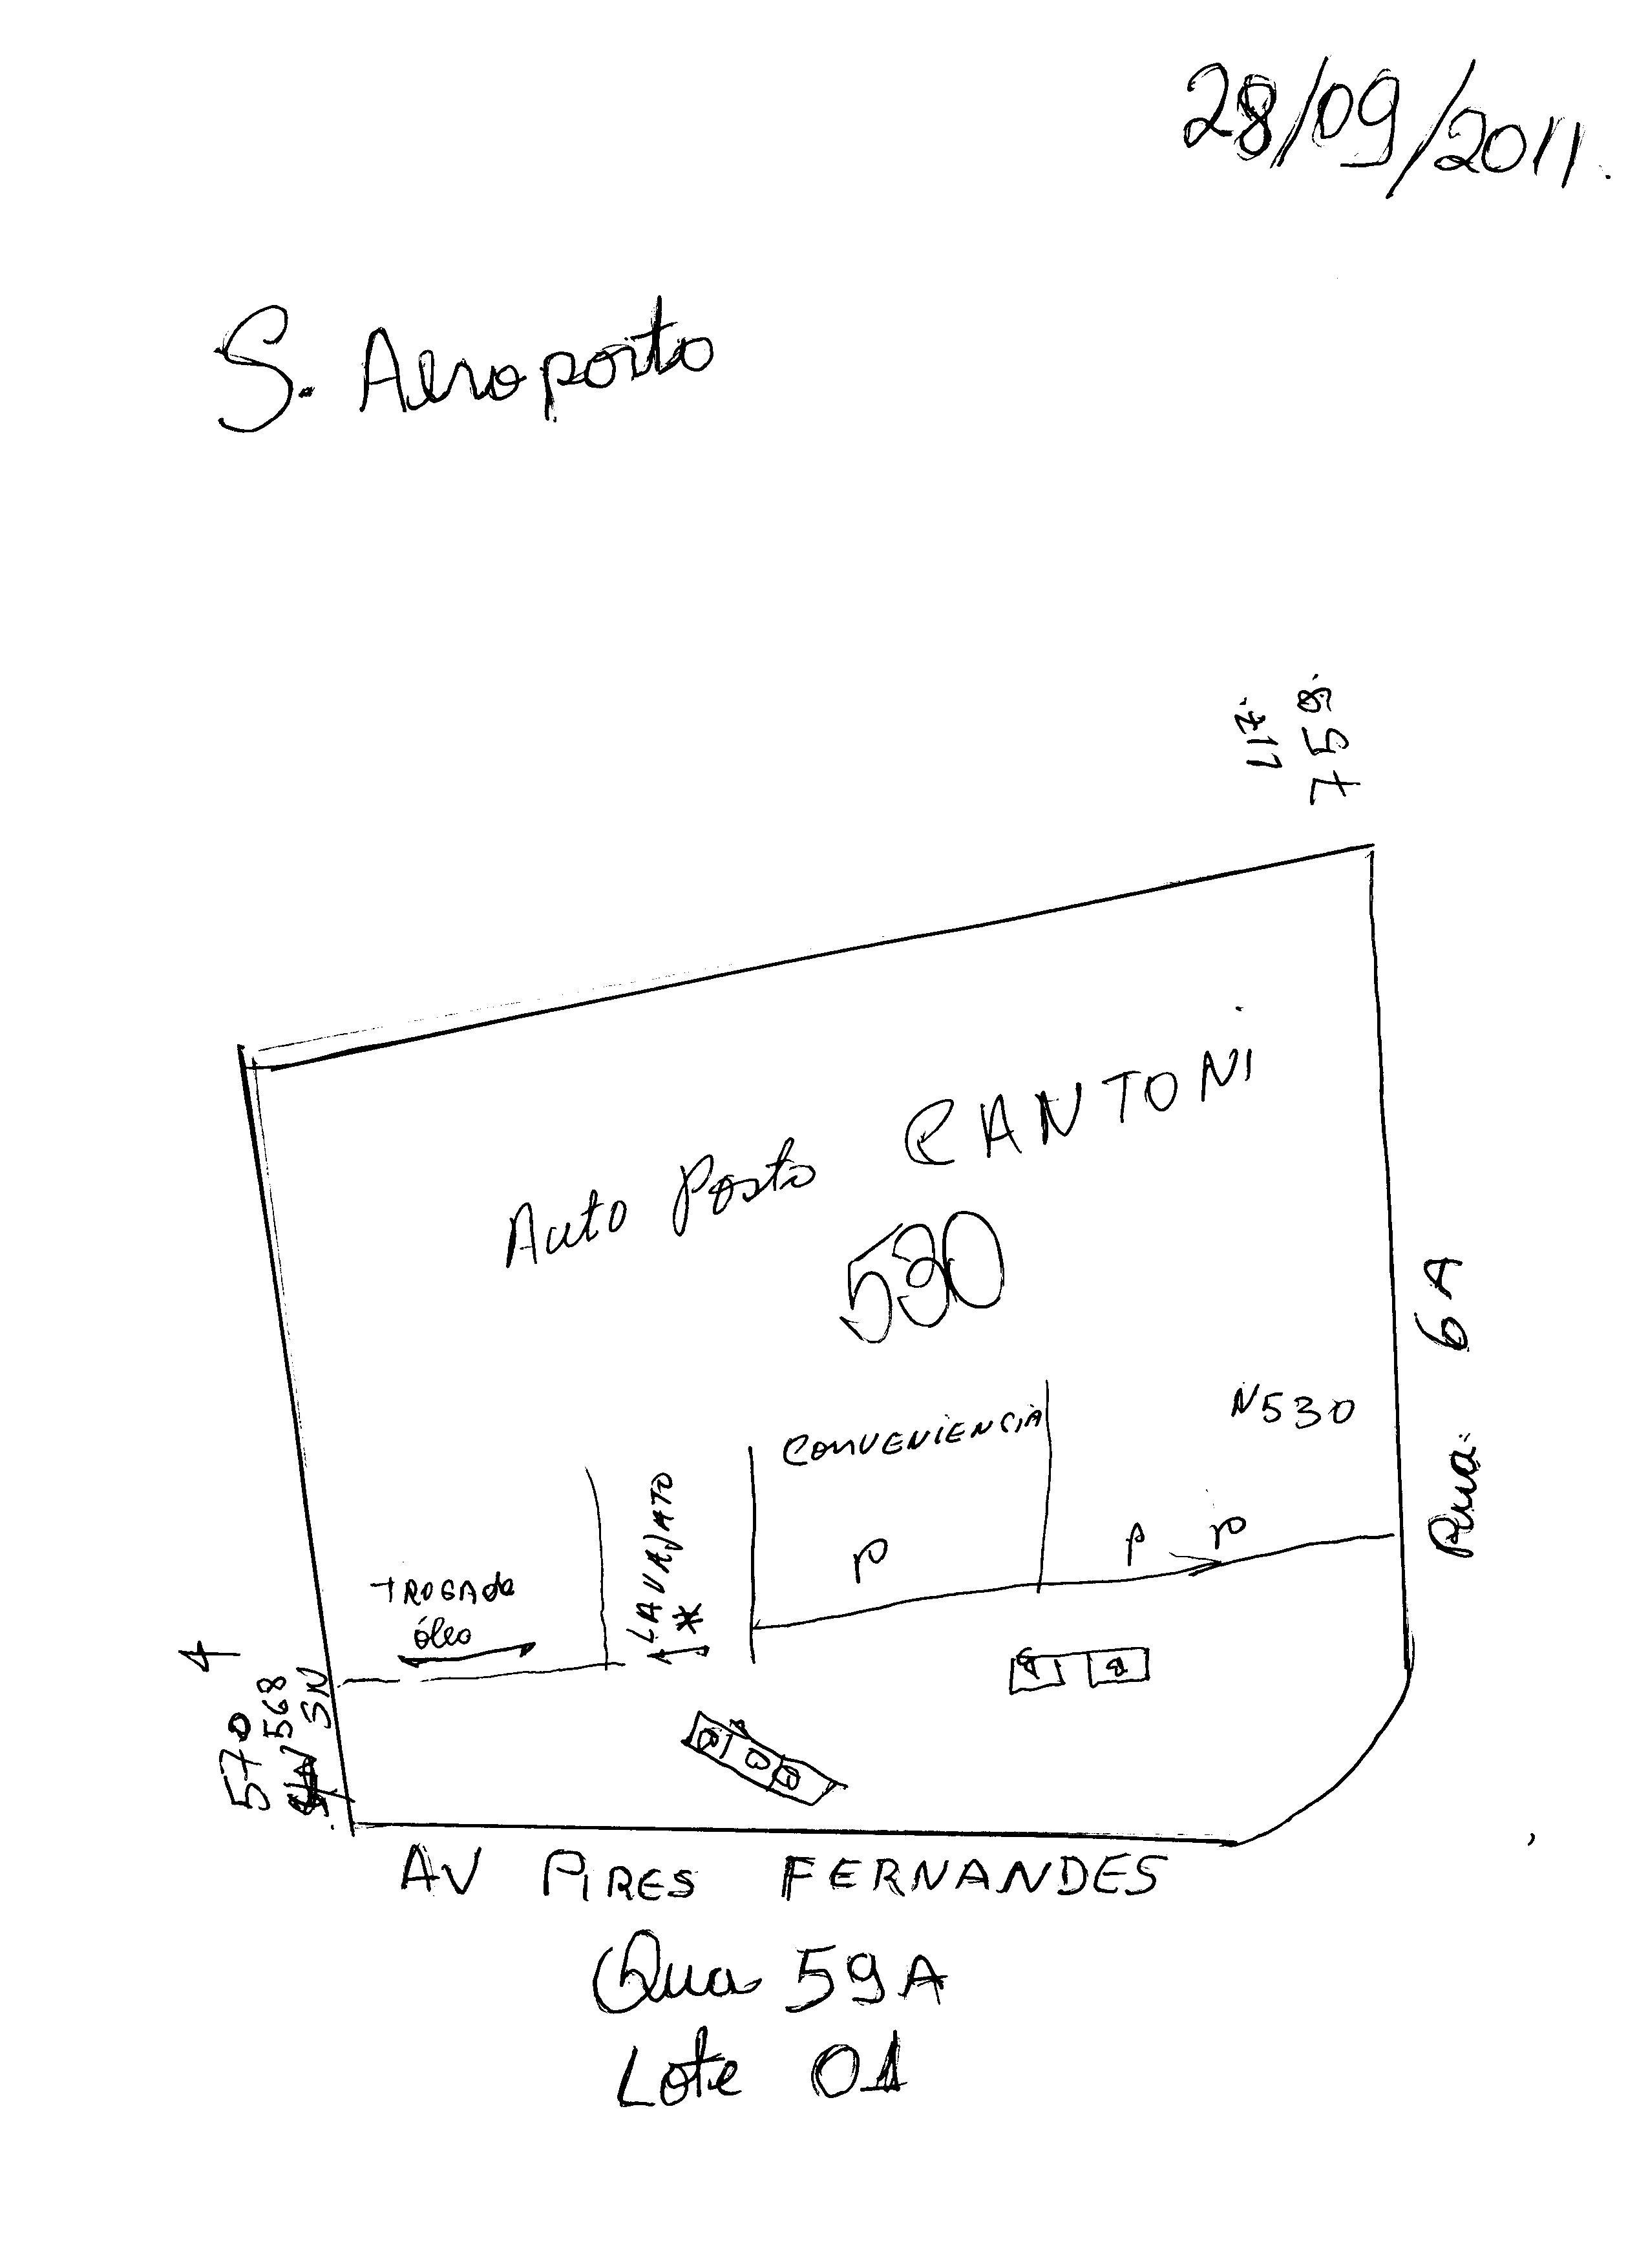 28/09/2011.
S. Aeroporto
L17.
758.
Auto Posto CANTONI
530
Rua 6A
N530
CONVENIENCIA
P
P P
LAVAJATO
TROCA de
óleo
570
568
SN
B B
B B B
AV PIRES FERNANDES
Qua 59A
Lote 01